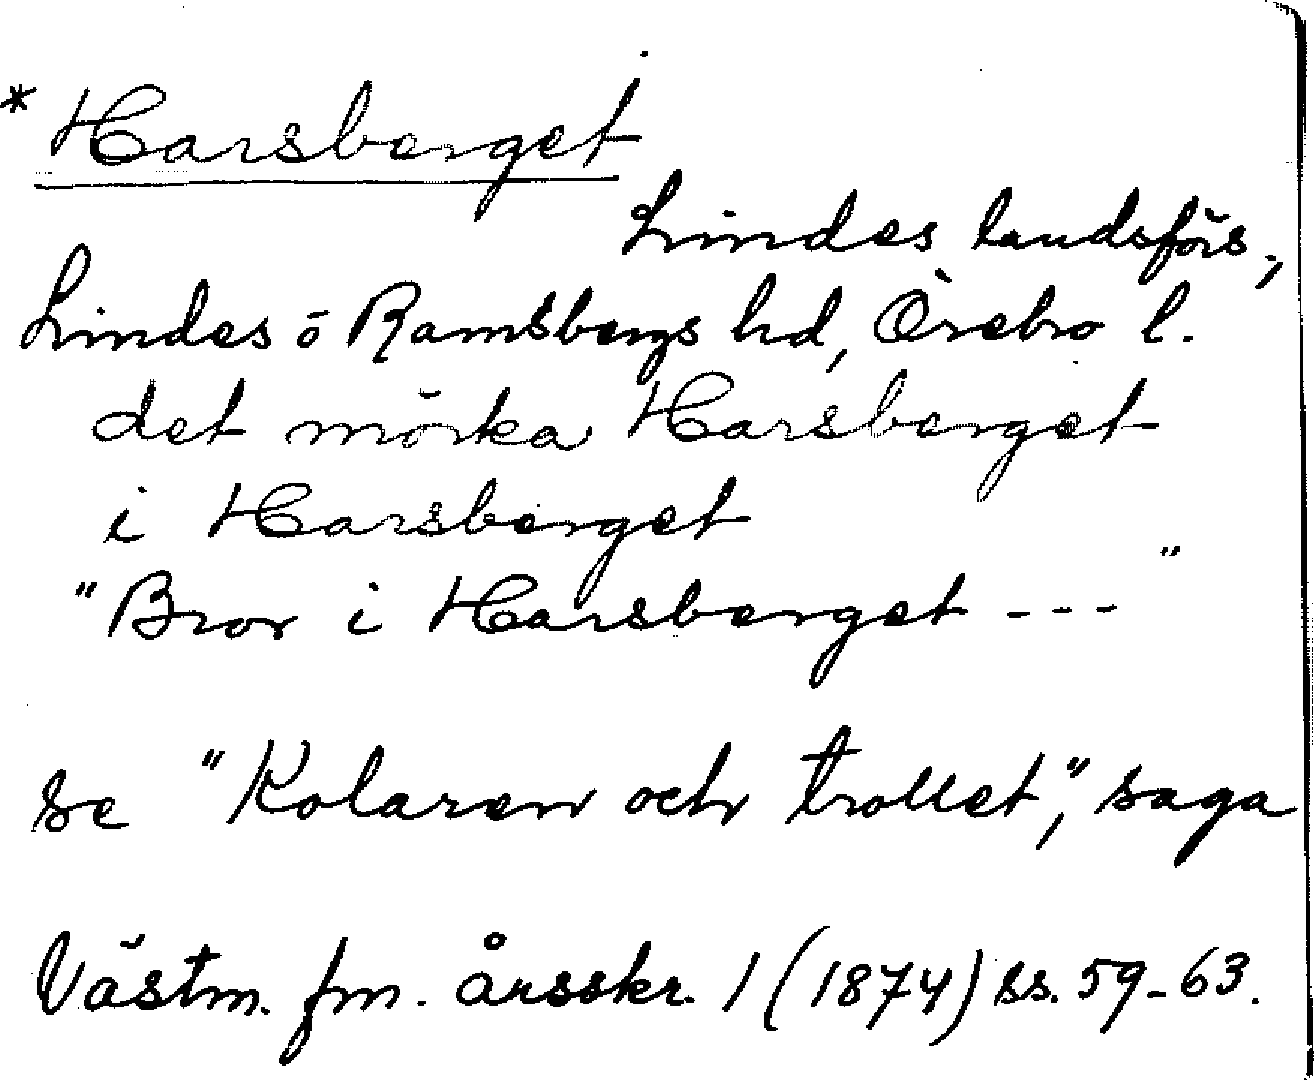 * Harsberget
Lindes landsförs.,
Lindes o Ramsbergs hd, Örebro l.
det mörka Harsberget
i Harsberget
"Bror i Harsberget - - - "
se "Kolaren och trollet," saga
Västm. fm. årsskr. 1 (1874) ss. 59-63.